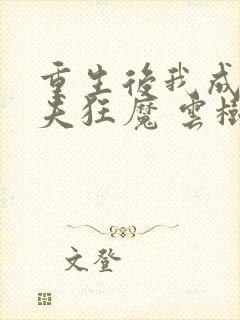 重生後我成
夫狂魔 雲樹
文登